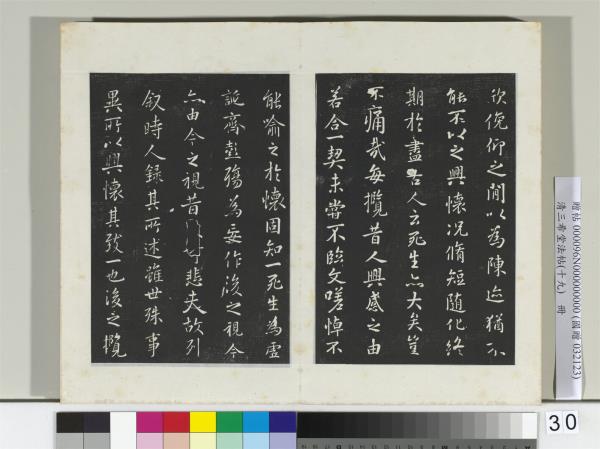 欣俛仰之間以為陳迹猶不
能不以之興懷況脩短隨化終
期於盡古人云死生亦大矣豈
不痛哉每攬昔人興感之由
若合一契未嘗不臨文嗟悼不
能喻之於懷固知一死生為虛
誕齊彭殤為妄作後之視今
亦由今之視昔 悲夫故列
叙時人錄其所述雖世殊事
異所以興懷其致一也後之攬
贈帖 000096N000000000 (國贈 032123)
清三希堂法帖(十九) 冊
30